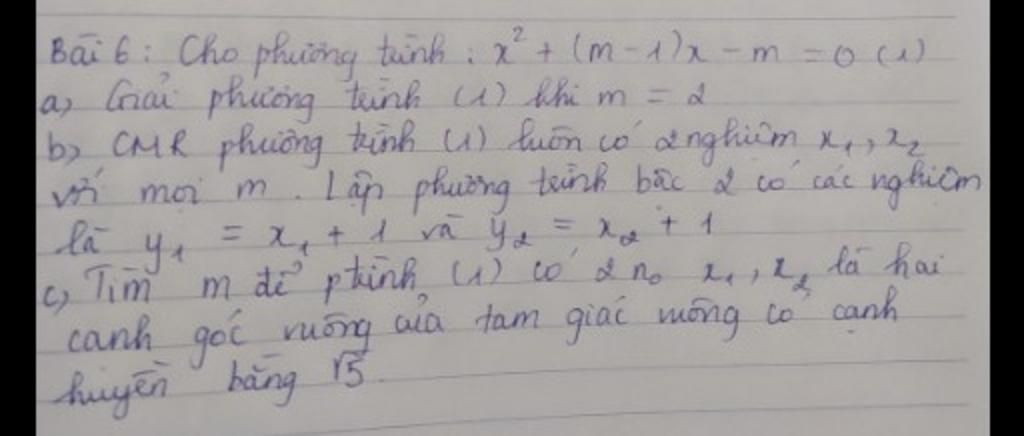 Bài 6: Cho phương trình: x² + (m - 1)x - m = 0 (1)
a, Giải phương trình (1) khi m = 2
b, CMR phương trình (1) luôn có 2 nghiệm x₁, x₂
với mọi m. Lập phương trình bậc 2 có các nghiệm
là y₁ = x₁ + 1 và y₂ = x₂ + 1
c, Tìm m để ptrình (1) có 2 n₀ x₁, x₂ là hai
cạnh góc vuông của tam giác vuông có cạnh
huyền bằng √5.